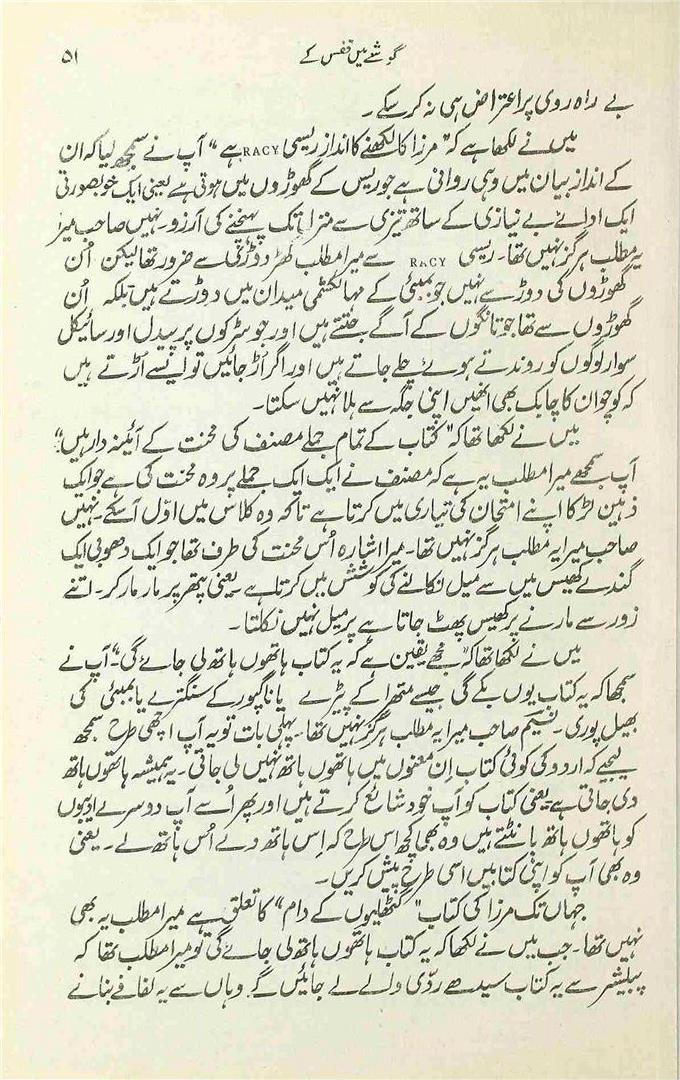 گوشے میں قفس کے
۵۱
بے راہ روی پر اعتراض ہی نہ کر سکے۔
میں نے لکھا ہے کہ "مرزا کا لکھنے کا انداز ریسی RACY ہے" آپ نے سمجھ لیا کہ ان
کے انداز بیان میں وہی روانی ہے جو ریس کے گھوڑوں میں ہوتی ہے یعنی ایک خوبصورتی
ایک ادائے بے نیازی کے ساتھ تیزی سے منزل تک پہنچنے کی آرزو۔ نہیں صاحب میرا
یہ مطلب ہرگز نہیں تھا۔ ریسی RACY سے میرا مطلب گھڑ دوڑ ہی سے ضرور تھا لیکن اُن
گھوڑوں کی دوڑ سے نہیں جو بمبئی کے مہالکشمی میدان میں دوڑتے ہیں بلکہ اُن
گھوڑوں سے تھا جو تانگوں کے آگے جتتے ہیں اور جو سڑکوں پر پیدل اور سائیکل
سوار لوگوں کو روندتے ہوئے چلے جاتے ہیں اور اگر اڑ جائیں تو ایسے اڑتے ہیں
کہ کوچوان کا چابک بھی انھیں اپنی جگہ سے ہلا نہیں سکتا۔
میں نے لکھا تھا کہ "کتاب کے تمام جملے مصنف کی محنت کے آئینہ دار ہیں"
آپ سمجھے میرا مطلب یہ ہے کہ مصنف نے ایک ایک جملے پر وہ محنت کی ہے جو ایک
ذہین لڑکا اپنے امتحان کی تیاری میں کرتا ہے تاکہ وہ کلاس میں اوّل آ سکے۔ نہیں
صاحب میرا یہ مطلب ہرگز نہیں تھا۔ میرا اشارہ اُس محنت کی طرف تھا جو ایک دھوبی ایک
گندے کھیس میں سے میل نکالنے کی کوشش میں کرتا ہے۔ یعنی پتھر پر مار مار کر۔ اتنے
زور سے مارنے پر کھیس پھٹ جاتا ہے پر میل نہیں نکلتا۔
میں نے لکھا تھا کہ "مجھے یقین ہے کہ یہ کتاب ہاتھوں ہاتھ لی جائے گی۔" آپ نے
سمجھا کہ یہ کتاب یوں بکے گی جیسے متھرا کے پیڑے یا ناگپور کے سنگترے یا بمبئی کی
بھیل پوری۔ نسیم صاحب میرا یہ مطلب ہرگز نہیں تھا۔ پہلی بات تو یہ آپ اچھی طرح سمجھ
لیجیے کہ اردو کی کوئی کتاب اِن معنوں میں ہاتھوں ہاتھ نہیں لی جاتی۔ یہ ہمیشہ ہاتھوں ہاتھ
دی جاتی ہے یعنی کتاب کو آپ خود شائع کرتے ہیں اور پھر اُسے آپ دوسرے ادیبوں
کو ہاتھوں ہاتھ بانٹتے ہیں وہ بھی کچھ اس طرح کہ اِس ہاتھ دے اُس ہاتھ لے۔ یعنی
وہ بھی آپ کو اپنی کتابیں اسی طرح پیش کریں۔
جہاں تک مرزا کی کتاب "گٹھلیوں کے دام" کا تعلق ہے میرا مطلب یہ بھی
نہیں تھا۔ جب میں نے لکھا کہ یہ کتاب ہاتھوں ہاتھ لی جائے گی تو میرا مطلب تھا کہ
پبلیشر سے یہ کتاب سیدھے ردّی والے لے جائیں گے وہاں سے یہ لفافے بنانے